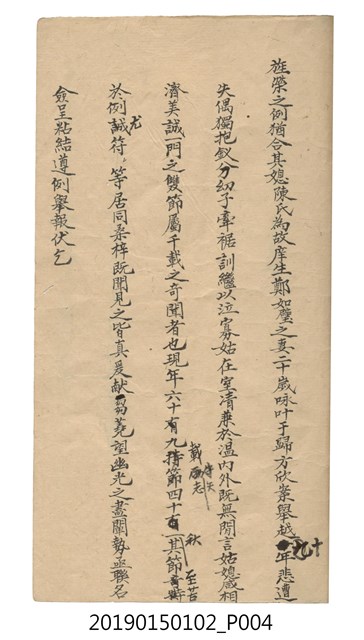 旌榮之例猶合其媳陳氏為故庠生鄭如璧之妻二十歲咏叶于歸方欣案舉越十九年悲遭
失偶獨抱釵分幼子牽裾訓繼以泣寡姑在室清兼於溫內外既無閒言姑媳咸相
濟美誠一門之雙節屬千載之奇聞者也現年六十有九持節四十有 其節
秋
至苦
矢
載
志
尤
於例誠符 等居同桑梓既聞見之皆真爰献芻蕘望幽光之盡闡勢亟聯名
僉呈粘結導例舉報伏乞
20190150102_P004